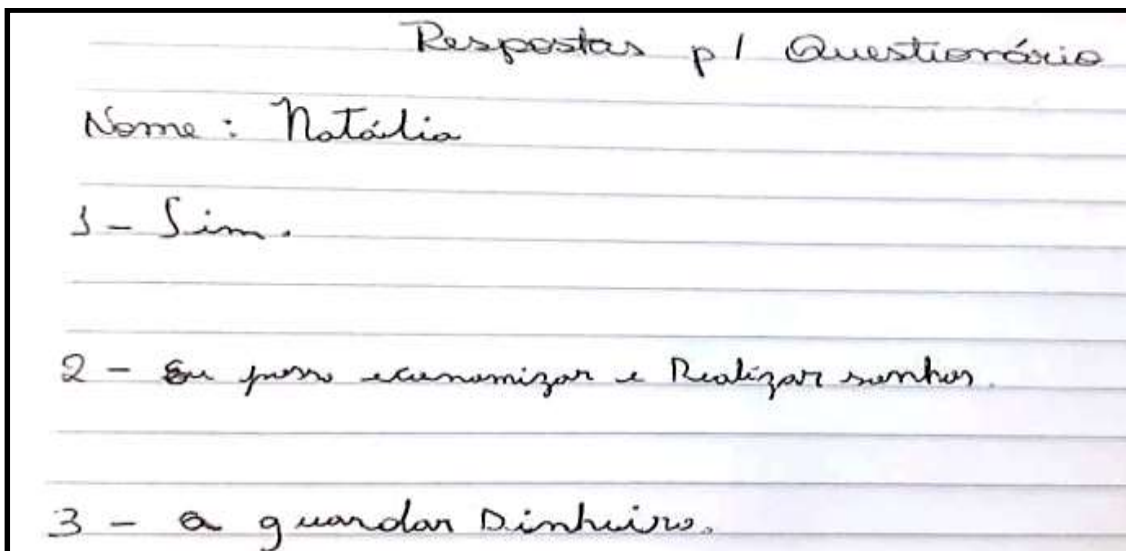 Respostas p/ Questionário
Nome: Natália
1 - Sim.
2 - Eu posso economizar e Realizar sonhos.
3 - a guardar Dinheiro.